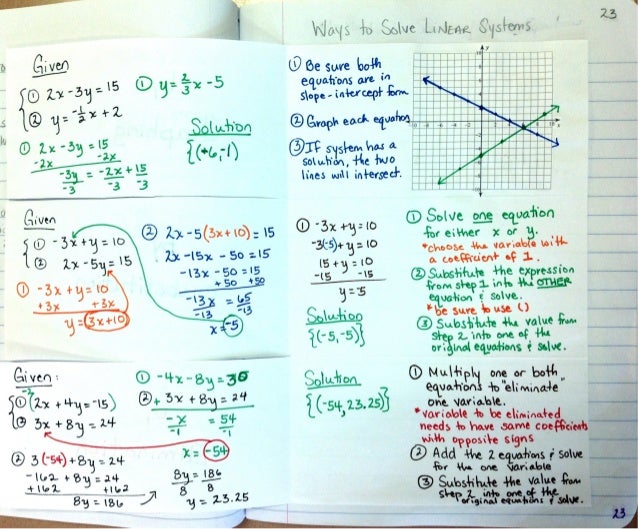 23
Ways to Solve LINEAR Systems
Given
① 2x-3y=15
② y=-1/2x+2
① y=2/3x-5
① 2x-3y=15
-2x -2x
-3y/-3 = -2x/-3 + 15/-3
Solution
{(+6,-1)}
① Be sure both
equations are in
slope-intercept form
② Graph each equation
③ If system has a
solution, the two
lines will intersect.
Given
① -3x+y=10
② 2x-5y=15
① -3x+y=10
+3x +3x
y=3x+10
② 2x-5(3x+10)=15
2x-15x-50=15
-13x-50=15
+50 +50
-13x = 65
-13 -13
x=-5
① -3x+y=10
-3(-5)+y=10
15+y=10
-15 -15
y=-5
Solution
{(-5,-5)}
① Solve one equation
for either x or y.
*choose the variable with
a coefficient of 1.
② Substitute the expression
from step 1 into the OTHER
equation & solve.
*be sure to use ()
③ Substitute the value from
step 2 into one of the
original equations & solve.
Given:
-2
① (2x+4y=-15)
② 3x+8y=24
① -4x-8y=30
② + 3x+8y=24
-x = 54
-1 -1
x=-54
② 3(-54)+8y=24
-162+8y=24
+162 +162
8y=186
8y = 186
8 8
y=23.25
Solution
{(-54,23.25)}
① Multiply one or both
equations to "eliminate"
one variable.
*variable to be eliminated
needs to have same coefficients
with opposite signs
② Add the 2 equations & solve
for the one variable
③ Substitute the value from
step 2 into one of the
original equations & solve.
23